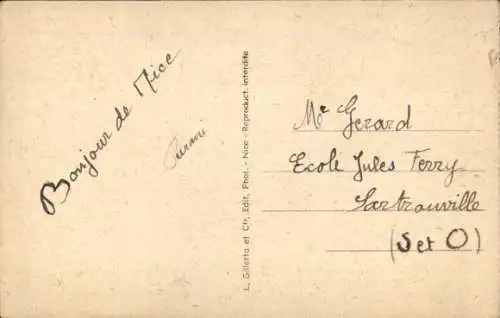 Bonjour de Nice
L. Gilletta et Cie, Edit. Phot. - Nice - Reproduct. interdite
Mr Gerard
Ecole Jules Ferry
Sartrouville
(S et O)